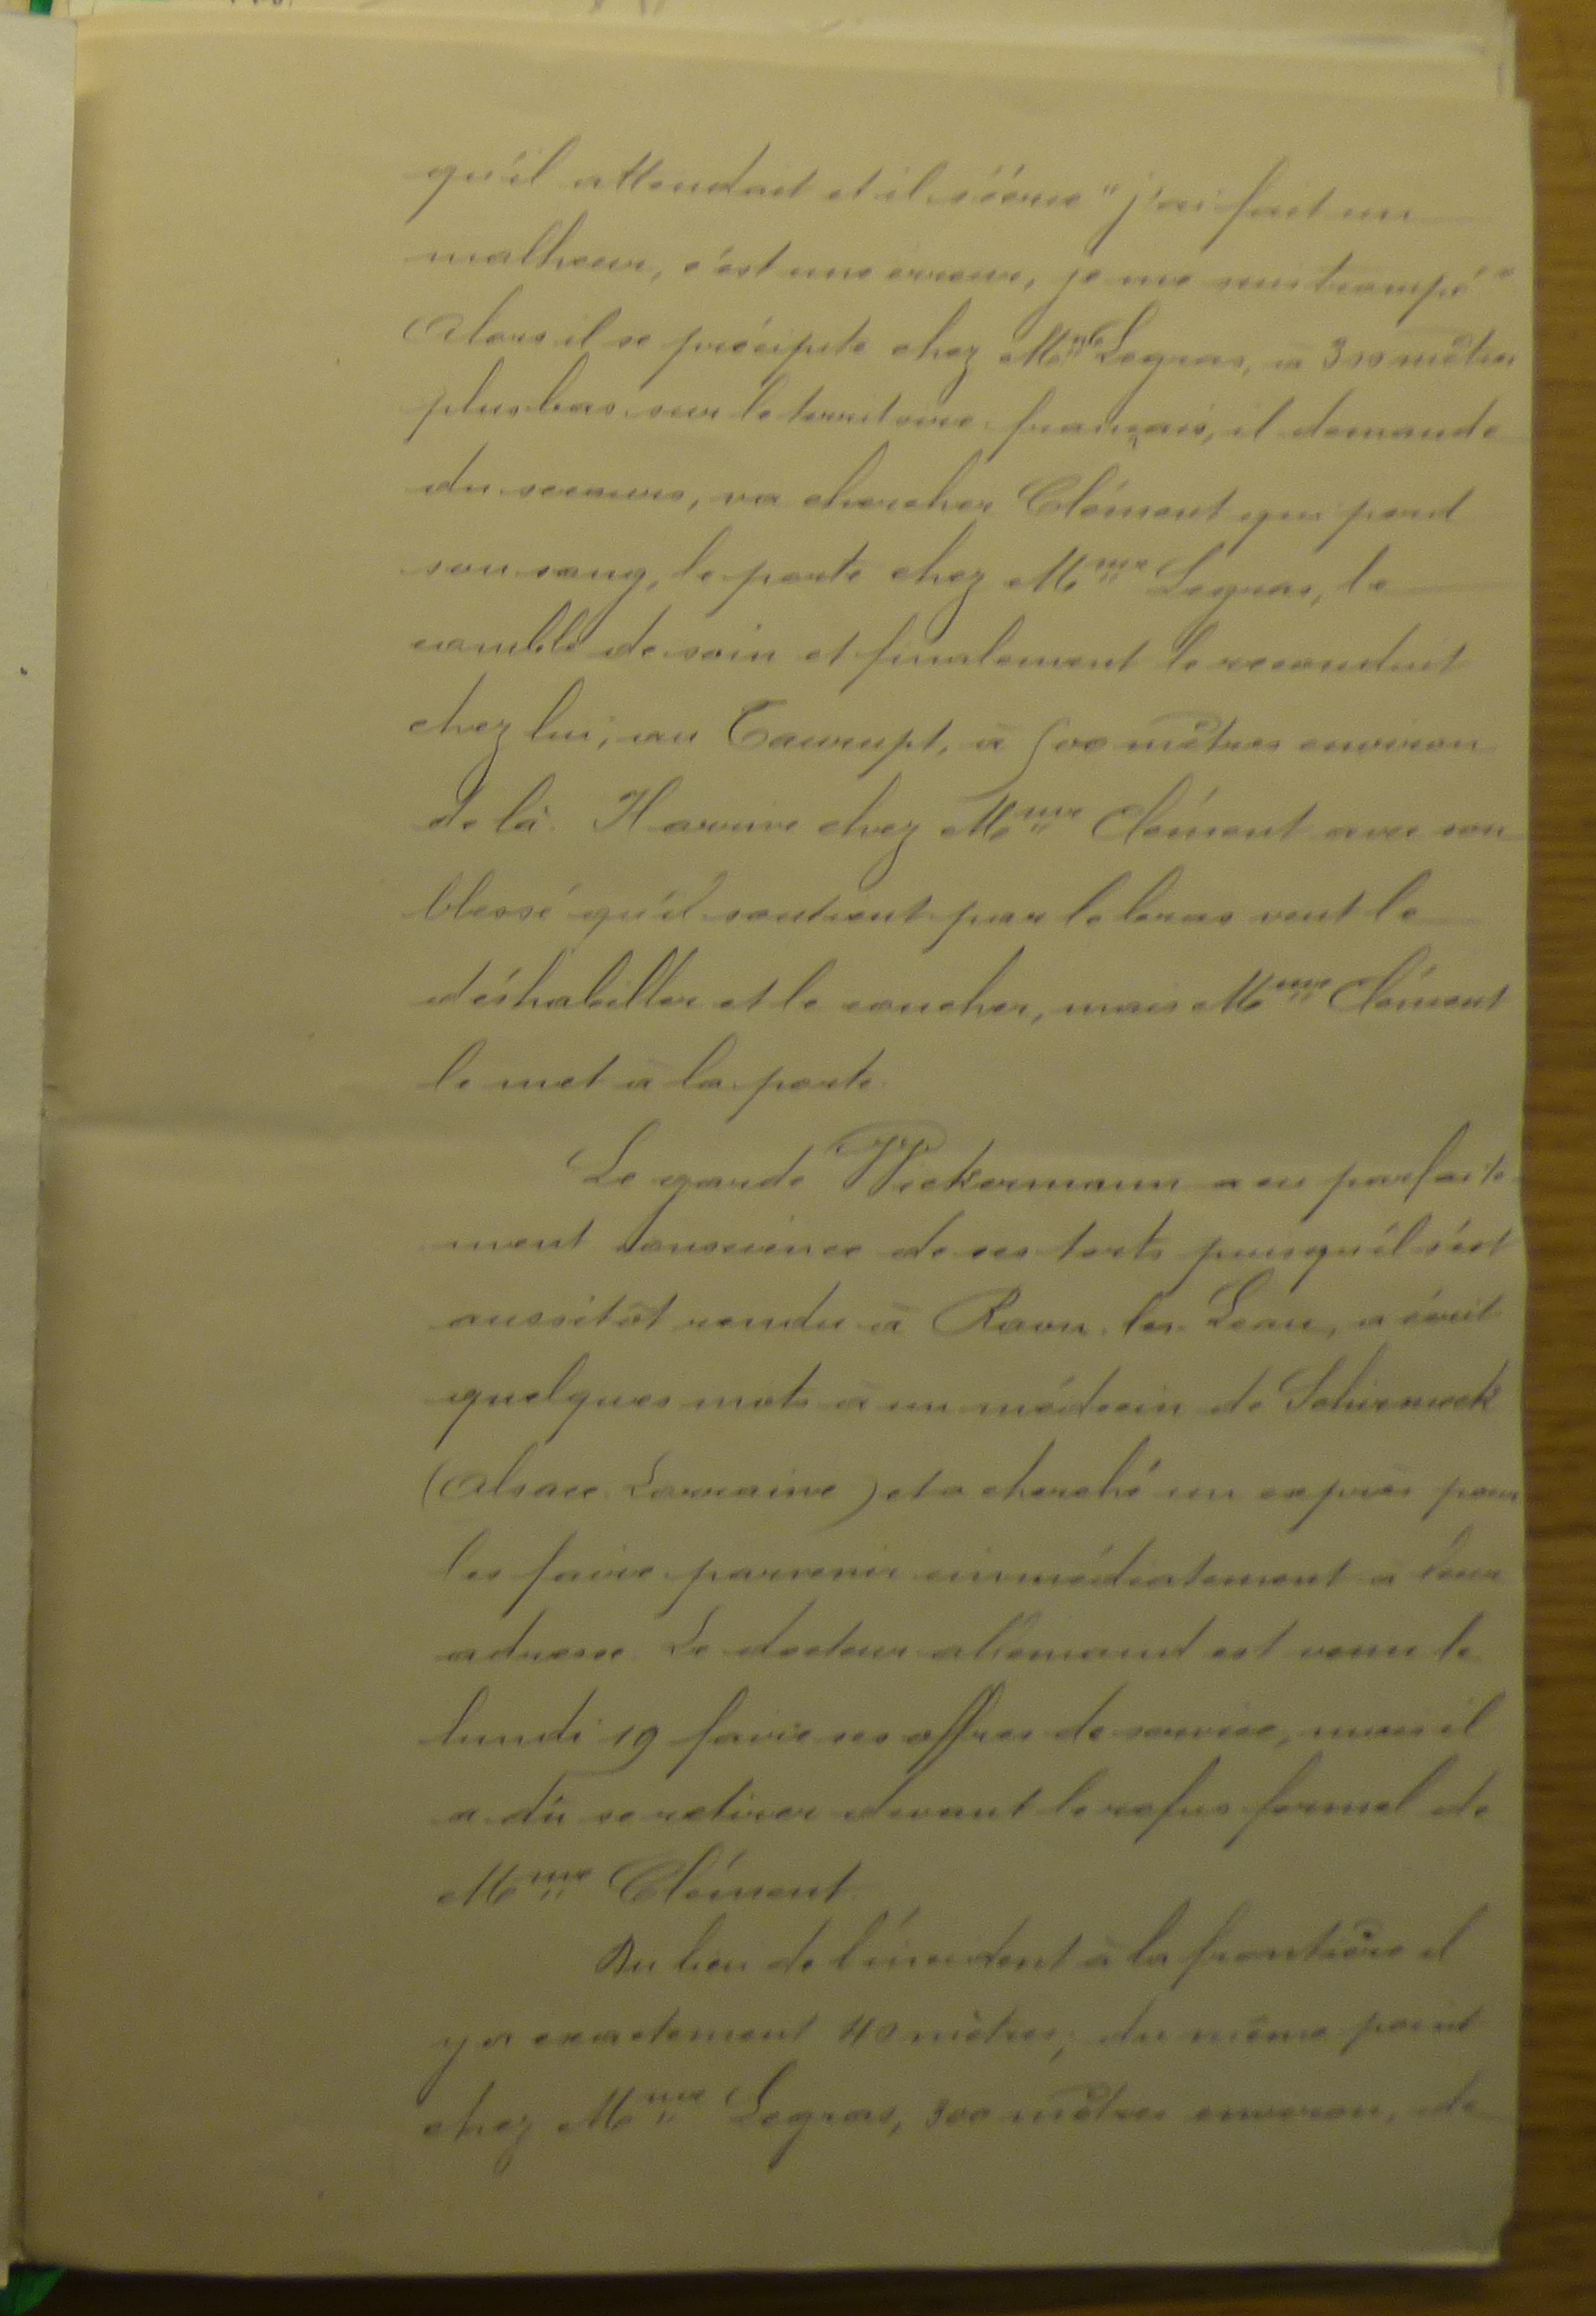 qu'il attendait et il s'écrie "j'ai fait un
malheur, c'est une erreur, je me suis trompé"
Alors il se précipite chez Mme Legras, à 300 mètres
plus bas sur le territoire français, il demande
du secours, va chercher Clément qui perd
son sang, le porte chez Mme Legras, le
comble de soin et finalement le reconduit
chez lui, au Caurupt, à 500 mètres environ
de là. Il arrive chez Mme Clément avec son
blessé qu'il soutient par le bras veut le
déshabiller et le coucher, mais Mme Clément
le met à la porte.
Le garde Weckermann a eu parfaite
ment conscience de ses torts puisqu'il s'est
aussitôt rendu à Raon les Leau, a écrit
quelques mots à un médecin de Schirmeck
(Alsace Lorraine) et a cherché un exprès pour
les faire parvenir immédiatement à leur
adresse. Le docteur allemand est venu le
lundi 19 faire ses offres de service, mais il
a dû se retirer devant le refus formel de
Mme Clément
Du lieu de l'incident à la frontière il
y a exactement 40 mètres; du même point
chez Mme Legras, 300 mètres environ, de